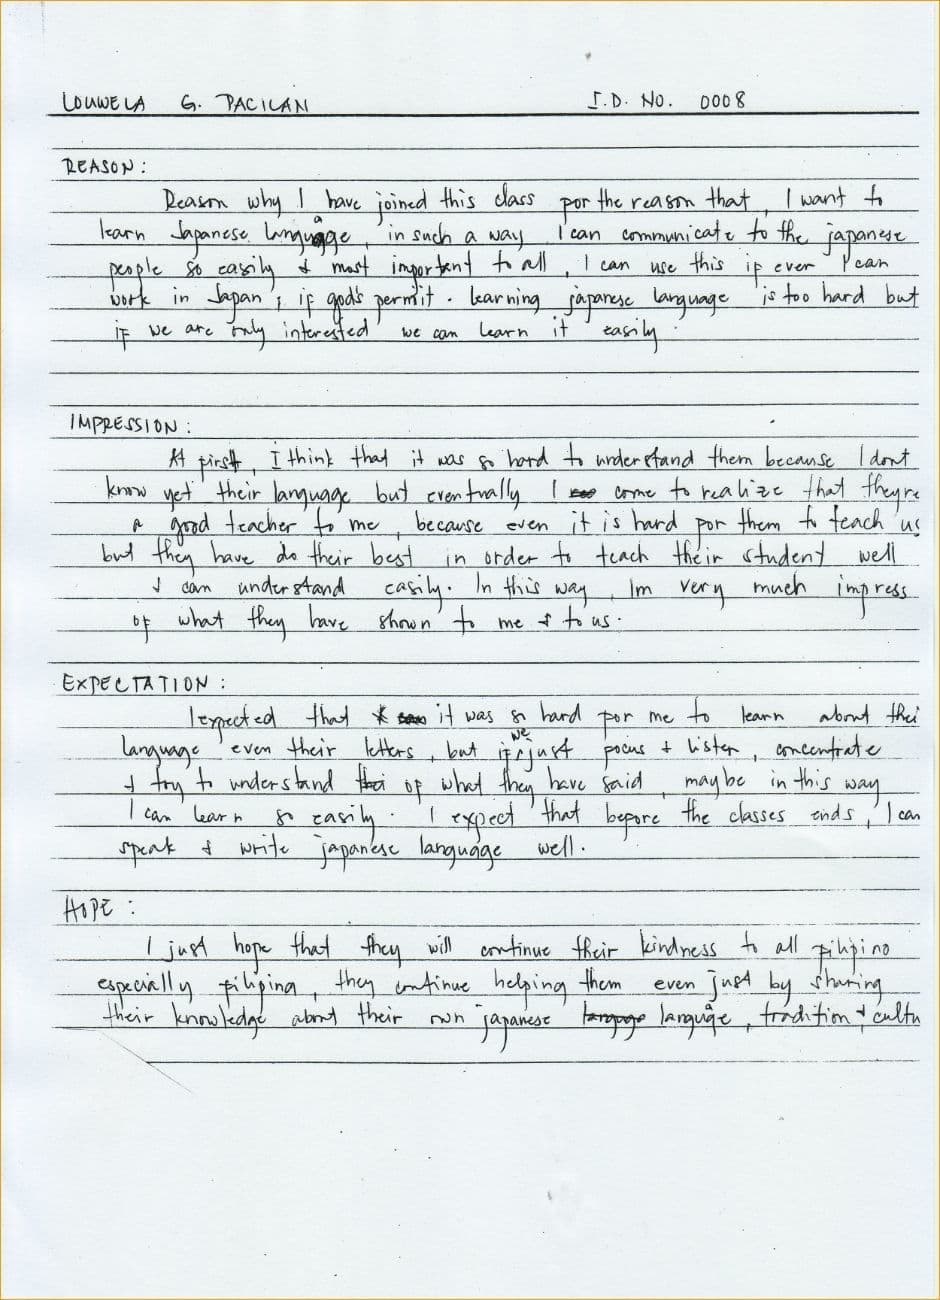 LOUWELA G. PACILAN I.D. NO. 0008
REASON:
Reason why I have joined this class por the reason that, I want to
learn Japanese language, in such a way, I can communicate to the japanese
people so easily & most important to all, I can use this if ever I can
work in Japan, if god's permit. Learning japanese language is too hard but
if we are only interested we can learn it easily.
IMPRESSION:
At first, I think that it was so hard to understand them because I dont
know yet their language but eventually I come to realize that theyre
a good teacher to me, because even it is hard por them to teach us
but they have do their best in order to teach their student well
& can understand easily. In this way, Im very much impress
of what they have shown to me & to us.
EXPECTATION:
I expected that it was so hard por me to learn about thei
language even their letters, but if we just pocus & listen, concentrate
& try to understand of what they have said, maybe in this way
I can learn so easily. I expect that before the classes ends, I can
speak & write japanese language well.
HOPE:
I just hope that they will continue their kindness to all pilipino
especially pilipina, they continue helping them even just by sharing
their knowledge about their own japanese language, tradition & cultu